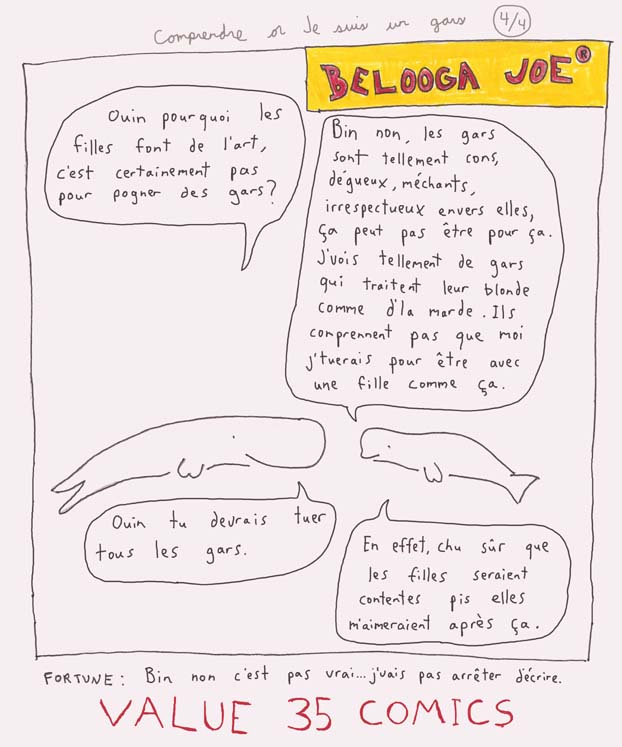 Comprendre or Je suis un gars 4/4
BELOOGA JOE®
Ouin pourquoi les
filles font de l'art,
c'est certainement pas
pour pogner des gars?
Bin non, les gars
sont tellement cons,
dégueux, méchants,
irrespectueux envers elles,
ça peut pas être pour ça.
J'vois tellement de gars
qui traitent leur blonde
comme d'la marde. Ils
comprennent pas que moi
j'tuerais pour être avec
une fille comme ça.
Ouin tu devrais tuer
tous les gars.
En effet, chu sûr que
les filles seraient
contentes pis elles
m'aimeraient après ça.
FORTUNE: Bin non c'est pas vrai...j'vais pas arrêter d'écrire.
VALUE 35 COMICS